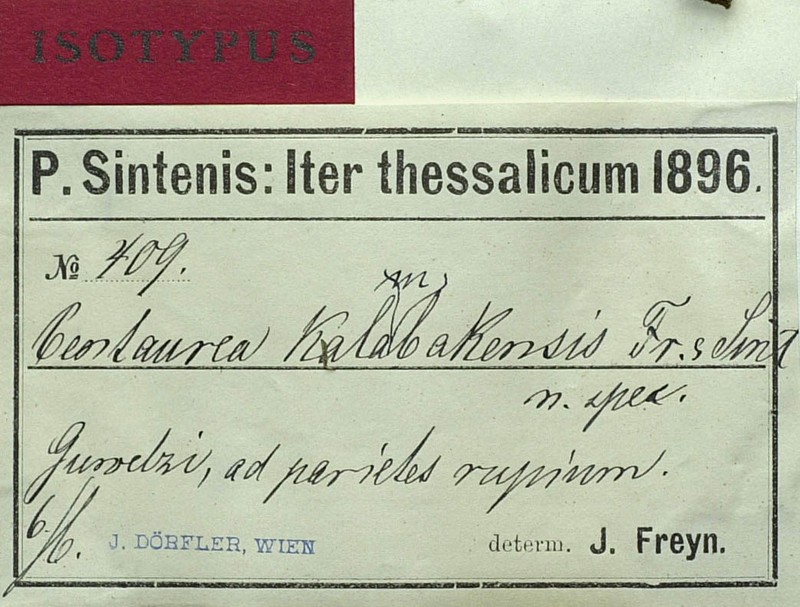 ISOTYPUS
P. Sintenis: Iter thessalicum 1896.
№ 409.
m
Centaurea Kalabakensis Fr. & Sint
n. spec.
ad parietes rupium.
6/6. J. DÖRFLER, WIEN determ. J. Freyn.